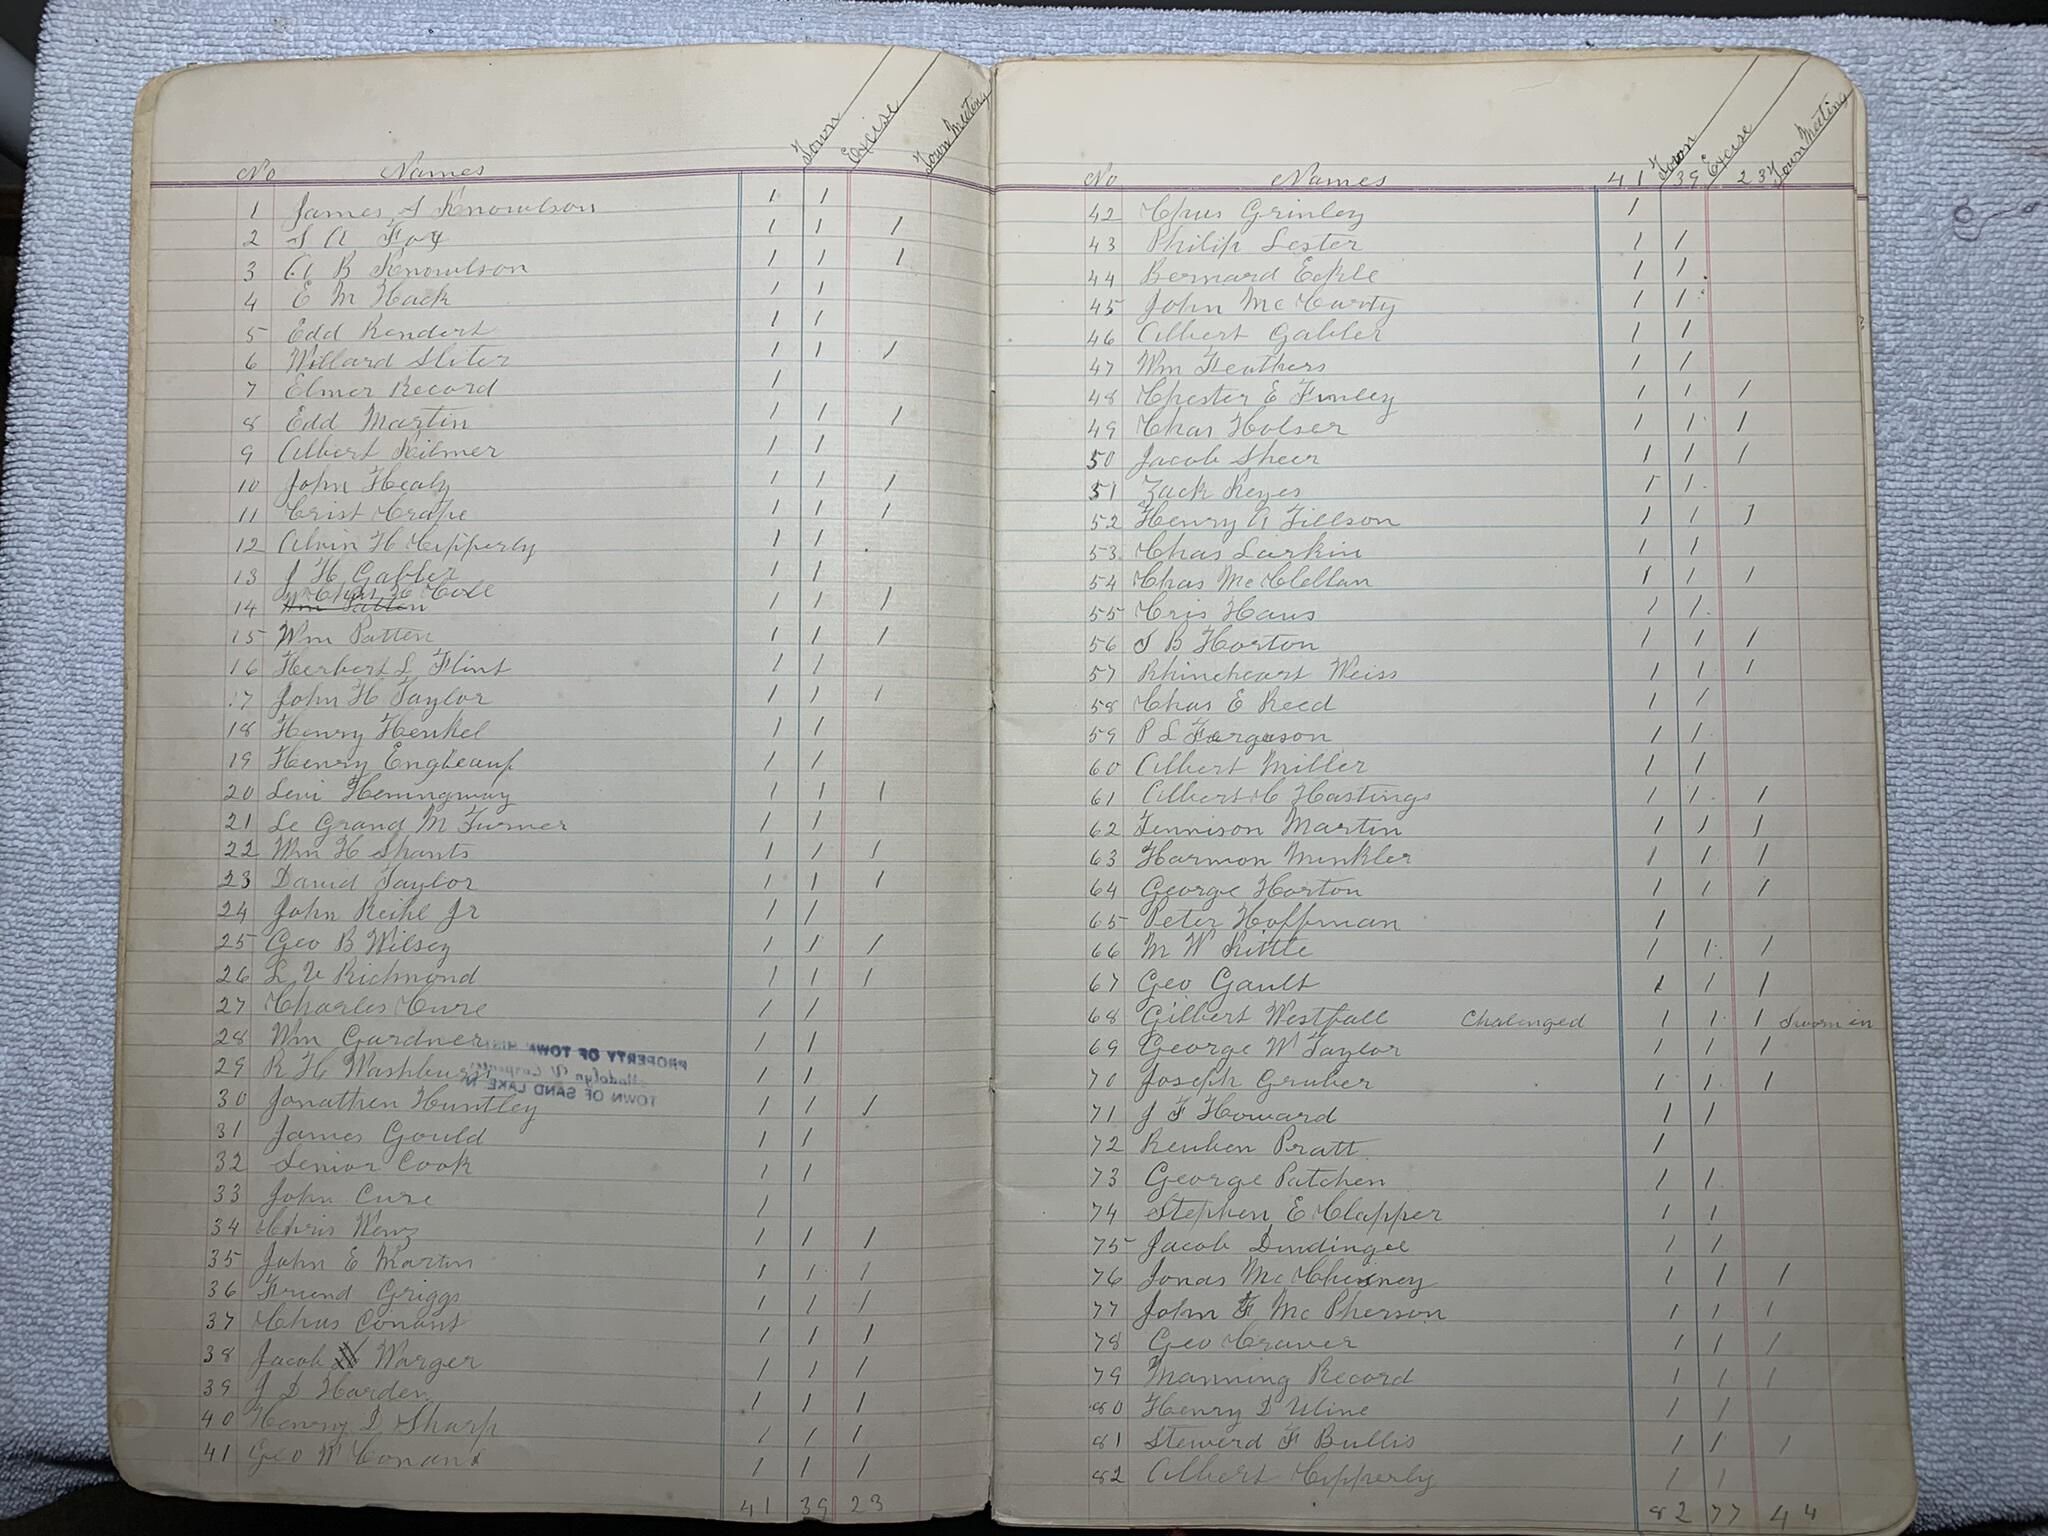 No Names Town Excise Town Meeting
1 James S Knowlson 1 1
2 S A Fox 1 1 1
3 A B Knowlson 1 1 1
4 E M Hack 1 1
5 Edd Rendert 1 1
6 Willard Sliter 1 1 1
7 Elmer Record 1
8 Edd Martin 1 1 1
9 Albert Kilmer 1 1
10 John Healy 1 1 1
11 Crist Crape 1 1 1
12 Alvin H Cipperly 1 1
13 J H Gabler 1 1
Chas H Cole
14 Wm Patten 1 1 1
15 Wm Patten 1 1 1
16 Herbert L Flint 1 1
17 John H Taylor 1 1 1
18 Henry Henkel 1 1
19 Henry Engleauf 1 1
20 Levi Hemingway 1 1 1
21 Le Grand M Turner 1 1
22 Wm H Shants 1 1 1
23 David Taylor 1 1 1
24 John Reihl Jr 1 1
25 Geo B Wilsey 1 1 1
26 L V Richmond 1 1 1
27 Charles Cure 1 1
28 Wm Gardner 1 1
29 R H Washburn 1 1
30 Jonathen Huntley 1 1 1
31 James Gould 1 1
32 Senior Cook 1 1
33 John Cure 1
34 Chris Wenz 1 1 1
35 John E Martin 1 1 1
36 Friend Griggs 1 1 1
37 Chas Conant 1 1 1
38 Jacob Warger 1 1 1
39 J D Harden 1 1 1
40 Henry D Sharp 1 1 1
41 Geo W Conant 1 1 1
41 39 23
PROPERTY OF TOWN
Madolyn V Carpenter
TOWN OF SAND LAKE
No Names 41 Town 39 Excise 23 Town Meeting
42 Chas Grinley 1
43 Philip Lester 1 1
44 Bernard Eckle 1 1
45 John McCarty 1 1
46 Albert Gabler 1 1
47 Wm Feathers 1 1
48 Chester E Finley 1 1 1
49 Chas Holser 1 1 1
50 Jacob Sheer 1 1 1
51 Zack Keyes 1 1
52 Henry A Tillson 1 1 1
53 Chas Larkin 1 1
54 Chas McClellan 1 1 1
55 Cris Haus 1 1
56 S B Horton 1 1 1
57 Rhineheart Weiss 1 1 1
58 Chas E Reed 1 1
59 P L Ferguson 1 1
60 Albert Miller 1 1
61 Albert C Hastings 1 1 1
62 Tennison Martin 1 1 1
63 Harmon Minkler 1 1 1
64 George Horton 1 1 1
65 Peter Hoffman 1
66 M W Kittle 1 1 1
67 Geo Gault 1 1 1
68 Gilbert Westfall Chalenged 1 1 1 Sworn in
69 George W Taylor 1 1 1
70 Joseph Gruber 1 1 1
71 J F Howard 1 1
72 Reuben Pratt 1
73 George Patchen 1 1
74 Stephen E Clapper 1 1
75 Jacob Dindingee 1 1
76 Jonas McChesney 1 1 1
77 John F McPherson 1 1 1
78 Geo Craver 1 1 1
79 Manning Record 1 1 1
80 Henry D Uline 1 1
81 Stewerd F Bullis 1 1 1
82 Albert Cipperly 1 1
82 77 44